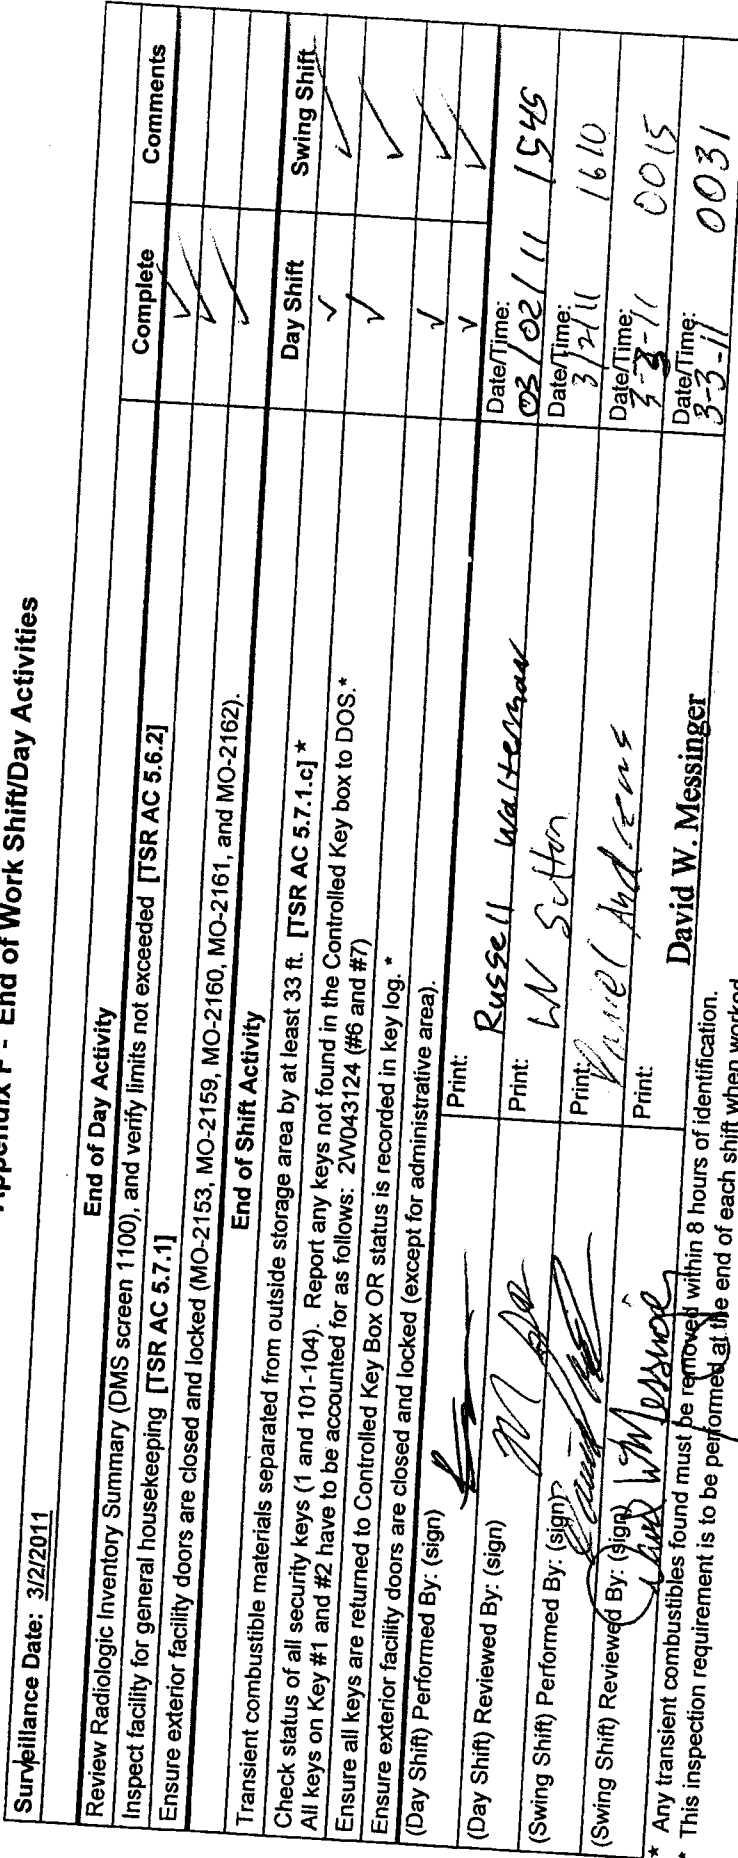 Appendix F - End of Work Shift/Day Activities
Surveillance Date: 3/2/2011
End of Day Activity Complete Comments
Review Radiologic Inventory Summary (DMS screen 1100), and verify limits not exceeded [TSR AC 5.6.2] ✓
Inspect facility for general housekeeping [TSR AC 5.7.1] ✓
Ensure exterior facility doors are closed and locked (MO-2153, MO-2159, MO-2160, MO-2161, and MO-2162). ✓
End of Shift Activity Day Shift Swing Shift
Transient combustible materials separated from outside storage area by at least 33 ft. [TSR AC 5.7.1.c] * ✓ ✓
Check status of all security keys (1 and 101-104). Report any keys not found in the Controlled Key box to DOS.* ✓ ✓
All keys on Key #1 and #2 have to be accounted for as follows: 2W043124 (#6 and #7)
Ensure all keys are returned to Controlled Key Box OR status is recorded in key log. * ✓ ✓
Ensure exterior facility doors are closed and locked (except for administrative area). ✓ ✓
(Day Shift) Performed By: (sign) Print: Russell Walterman Date/Time: 03/02/11 1545
(Day Shift) Reviewed By: (sign) Print: LN Sutton Date/Time: 3/2/11 1610
(Swing Shift) Performed By: (sign) Print: Daniel Andrews Date/Time: 3-3-11 0015
(Swing Shift) Reviewed By: (sign) David W Messinger Print: David W. Messinger Date/Time: 3-3-11 0031
* Any transient combustibles found must be removed within 8 hours of identification.
* This inspection requirement is to be performed at the end of each shift when worked